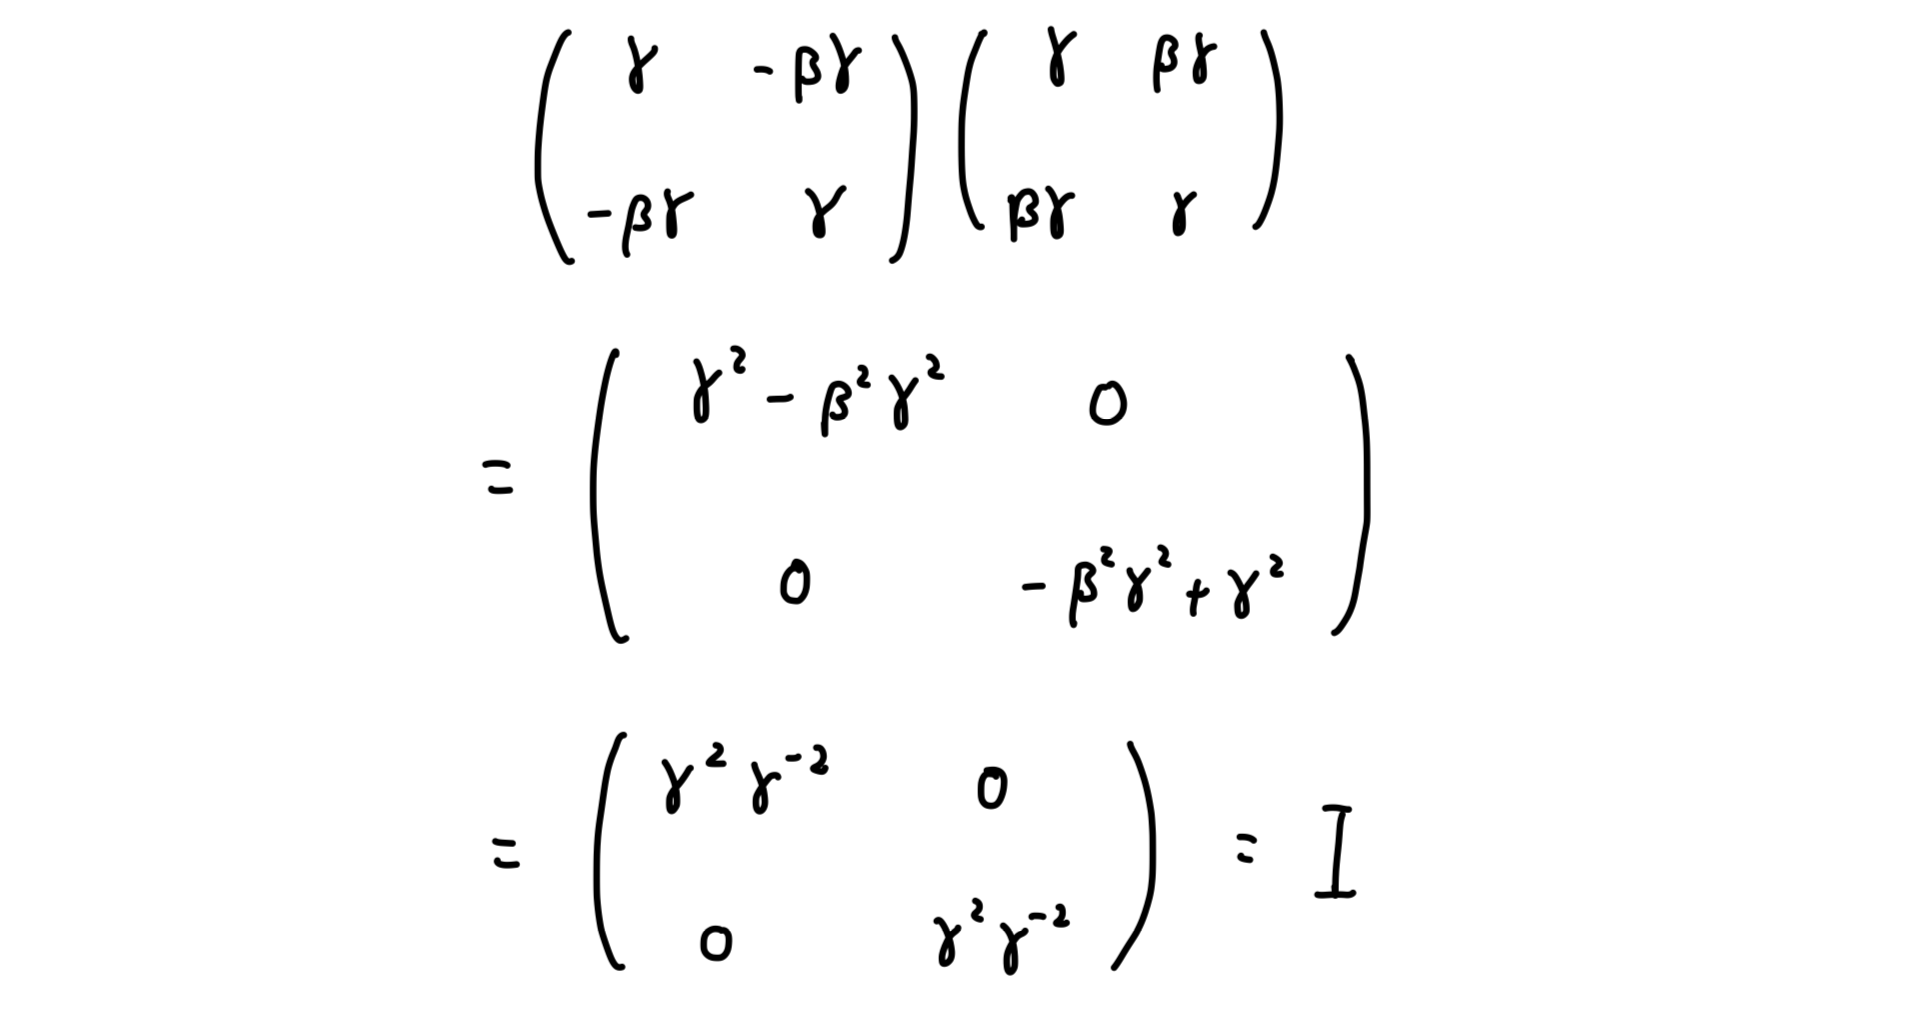 ( γ  -βγ ) ( γ  βγ )
( -βγ  γ ) ( βγ  γ )
= ( γ² - β²γ²  0 )
( 0  -β²γ² + γ² )
= ( γ²γ⁻²  0 ) = I
( 0  γ²γ⁻² )